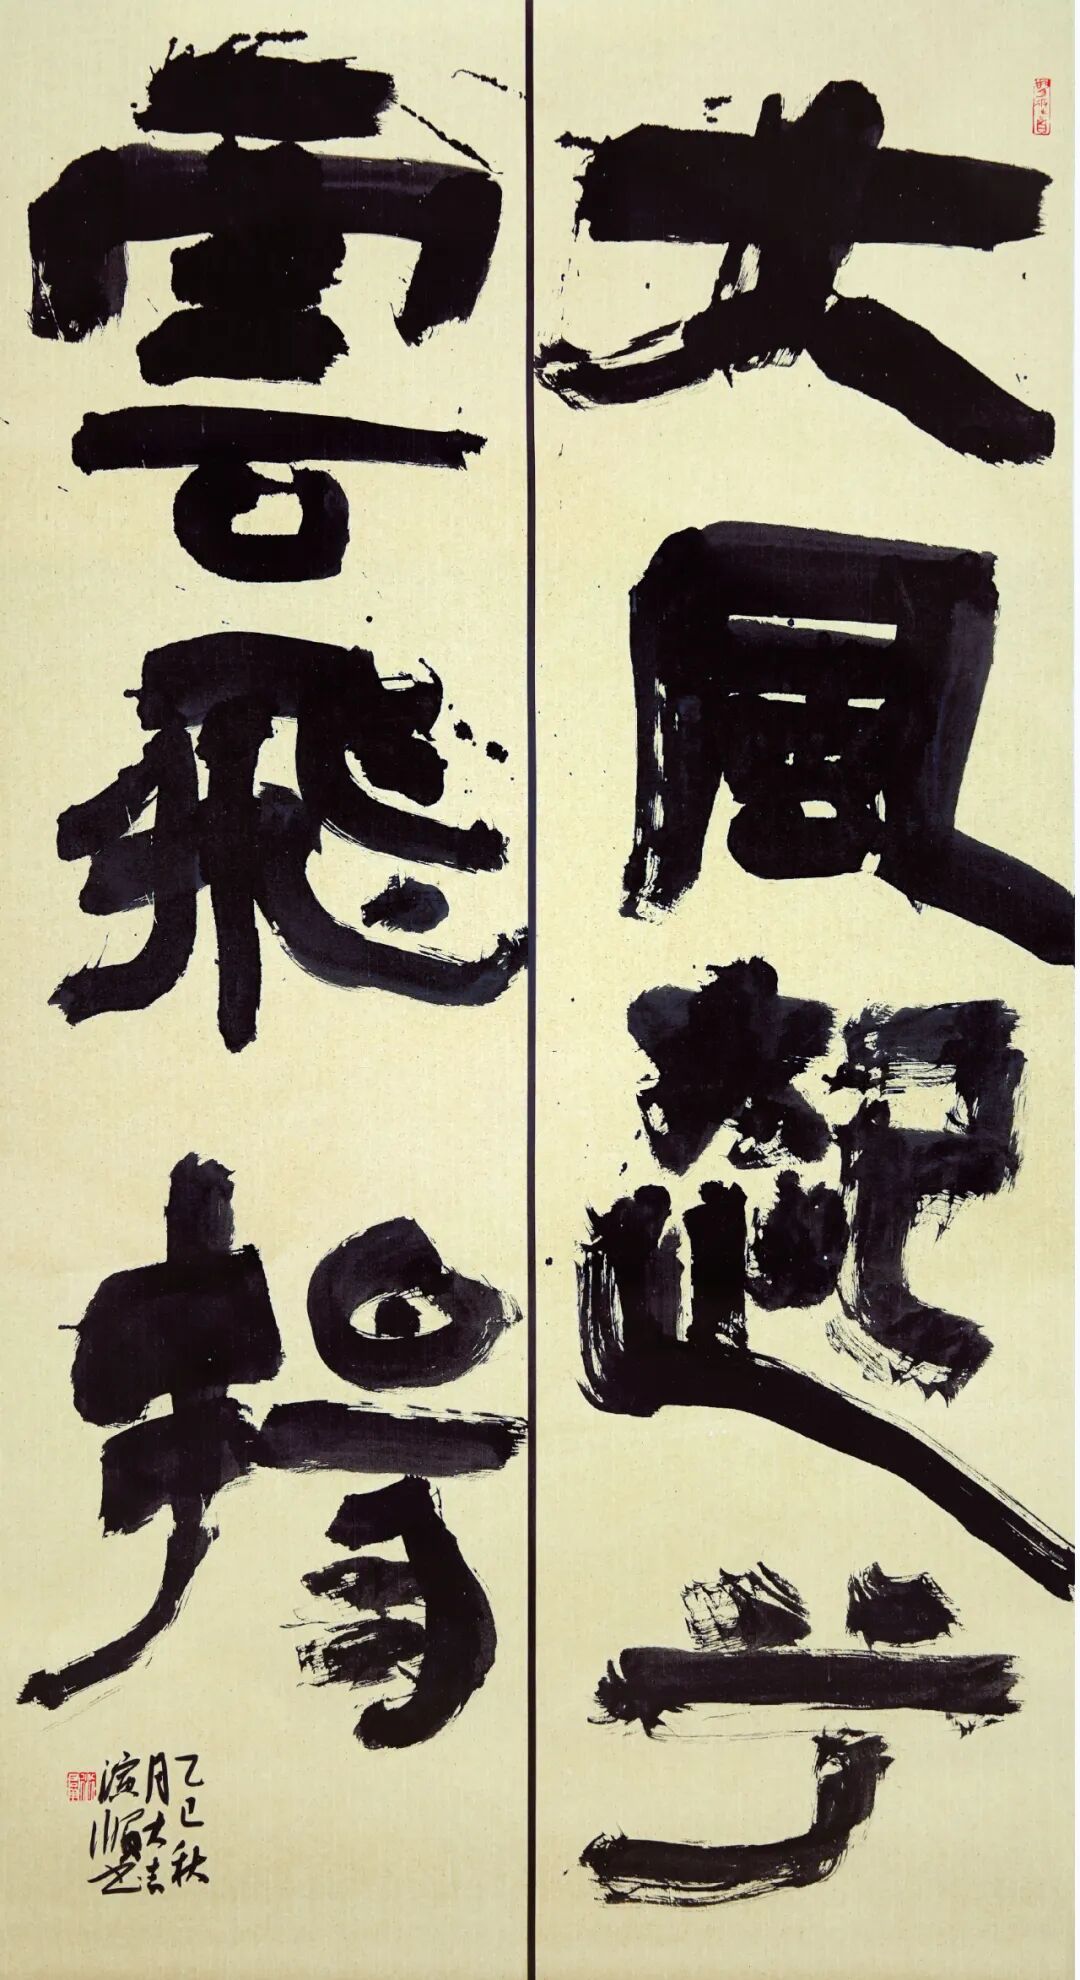 大風起兮
雲飛揚
乙巳秋
月大吉
順書